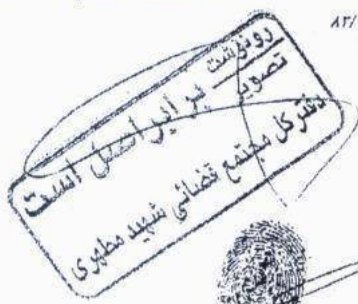 ۸۲/
رونوشت
تصویر
برابر اصل است
دفتر کل مجتمع قضائی شهید مطهری